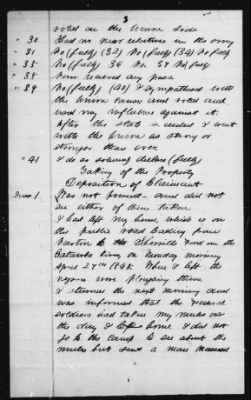 3
voted on the Union side
" 30 Has no near relatives in the army
" 31 No (fully) (32) No (fully) (34) No fully
" 35 No (fully) 36 No 37 No fully
" 38 Never received any pass
" 39 No (fully) (40) I sympathised with
the Union cause and voted and
used my influence against it.
After the state seceded I went
with the Union as strong or
stronger than ever
" 41 I do so solemnly declare (fully)
Taking of the Property
Deposition of Claimant
Item 1 Was not present and did not
see either of them taken
I had left my home, which is on
the public road leading from
Newton to the Sherrills Ford on the
Catawba River on Monday morning
April 24th 1865 When I left the
negro was ploughing them
I returned the next morning and
was informed that the Federal
soldiers had taken my mules on
the day I left home I did not
go to the camp to see about the
mules but sent a man named